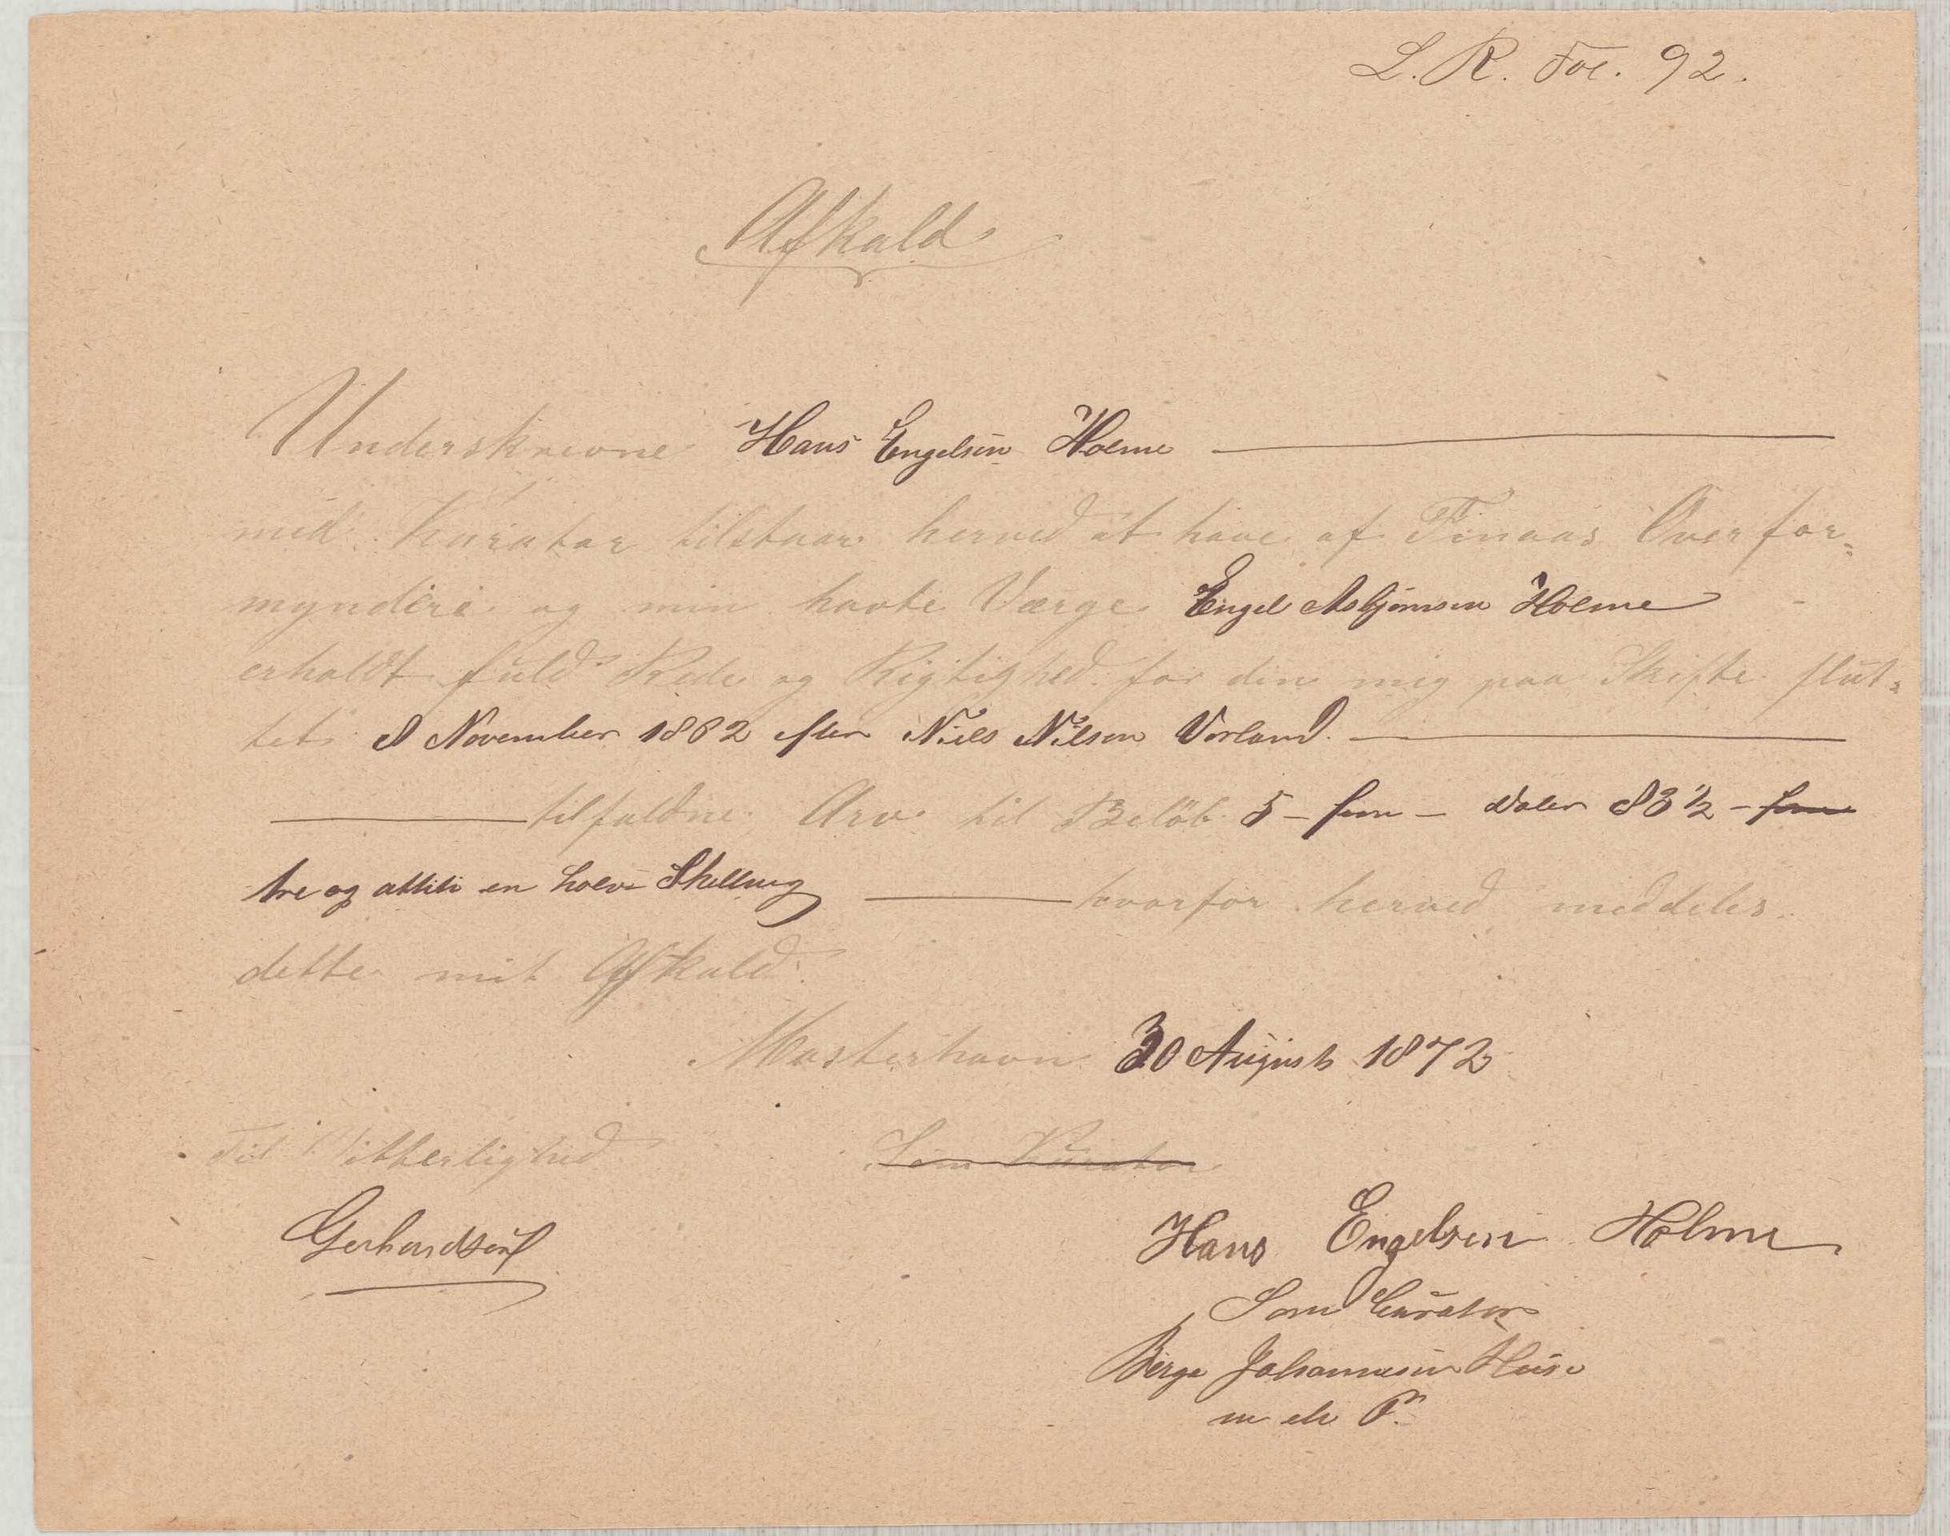 L. R. Fol. 92.
Afkald
Underskrevne Hans Engelsen Holme
med Kurator tilstaar herved at have af Finaas Overfor-
mynderi og min havte Værge Engel Asbjørnsen Holme
erholdt fuld Rede og Rigtighed for den mig paa Skifte slut-
tet 8 November 1862 efter Niels Nilsen Vorland
tilfaldne Arv til Beløb 5 - fem - Daler 83 1/2 - fem
tre og ottiti en halv Skilling hvorfor herved meddeles
dette mit Afkald.
Mosterhavn 30 August 1872
Til Vitterlighed Som Kurator
Gerhardsen
Hans Engelsen Holme
Som Curator
Børge Johannesen Huse
m P.